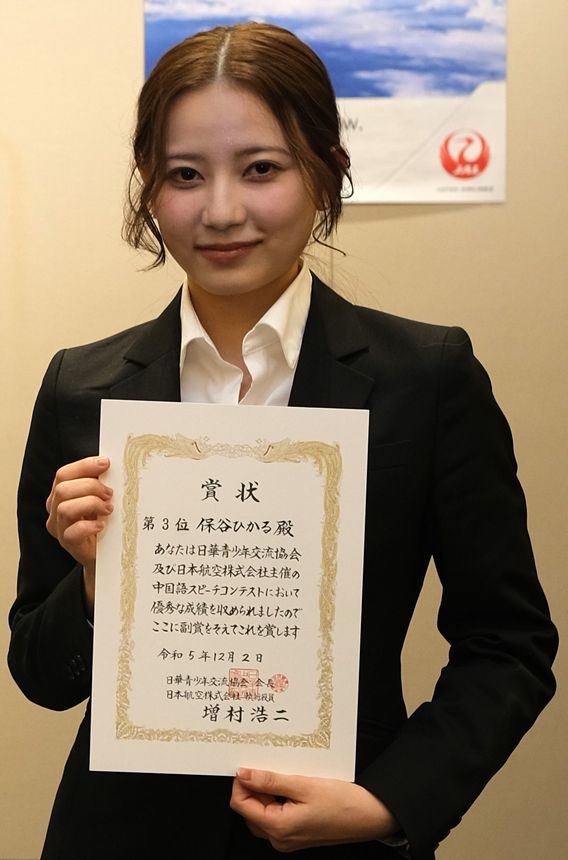 W.
JAL
賞状
第3位 保谷ひかる殿
あなたは日華青少年交流協会
及び日本航空株式会社主催の
中国語スピーチコンテストにおいて
優秀な成績を収められましたので
ここに副賞をそえてこれを賞します
令和5年12月2日
日華青少年交流協会 会長
日本航空株式会社 執行役員
増村浩二